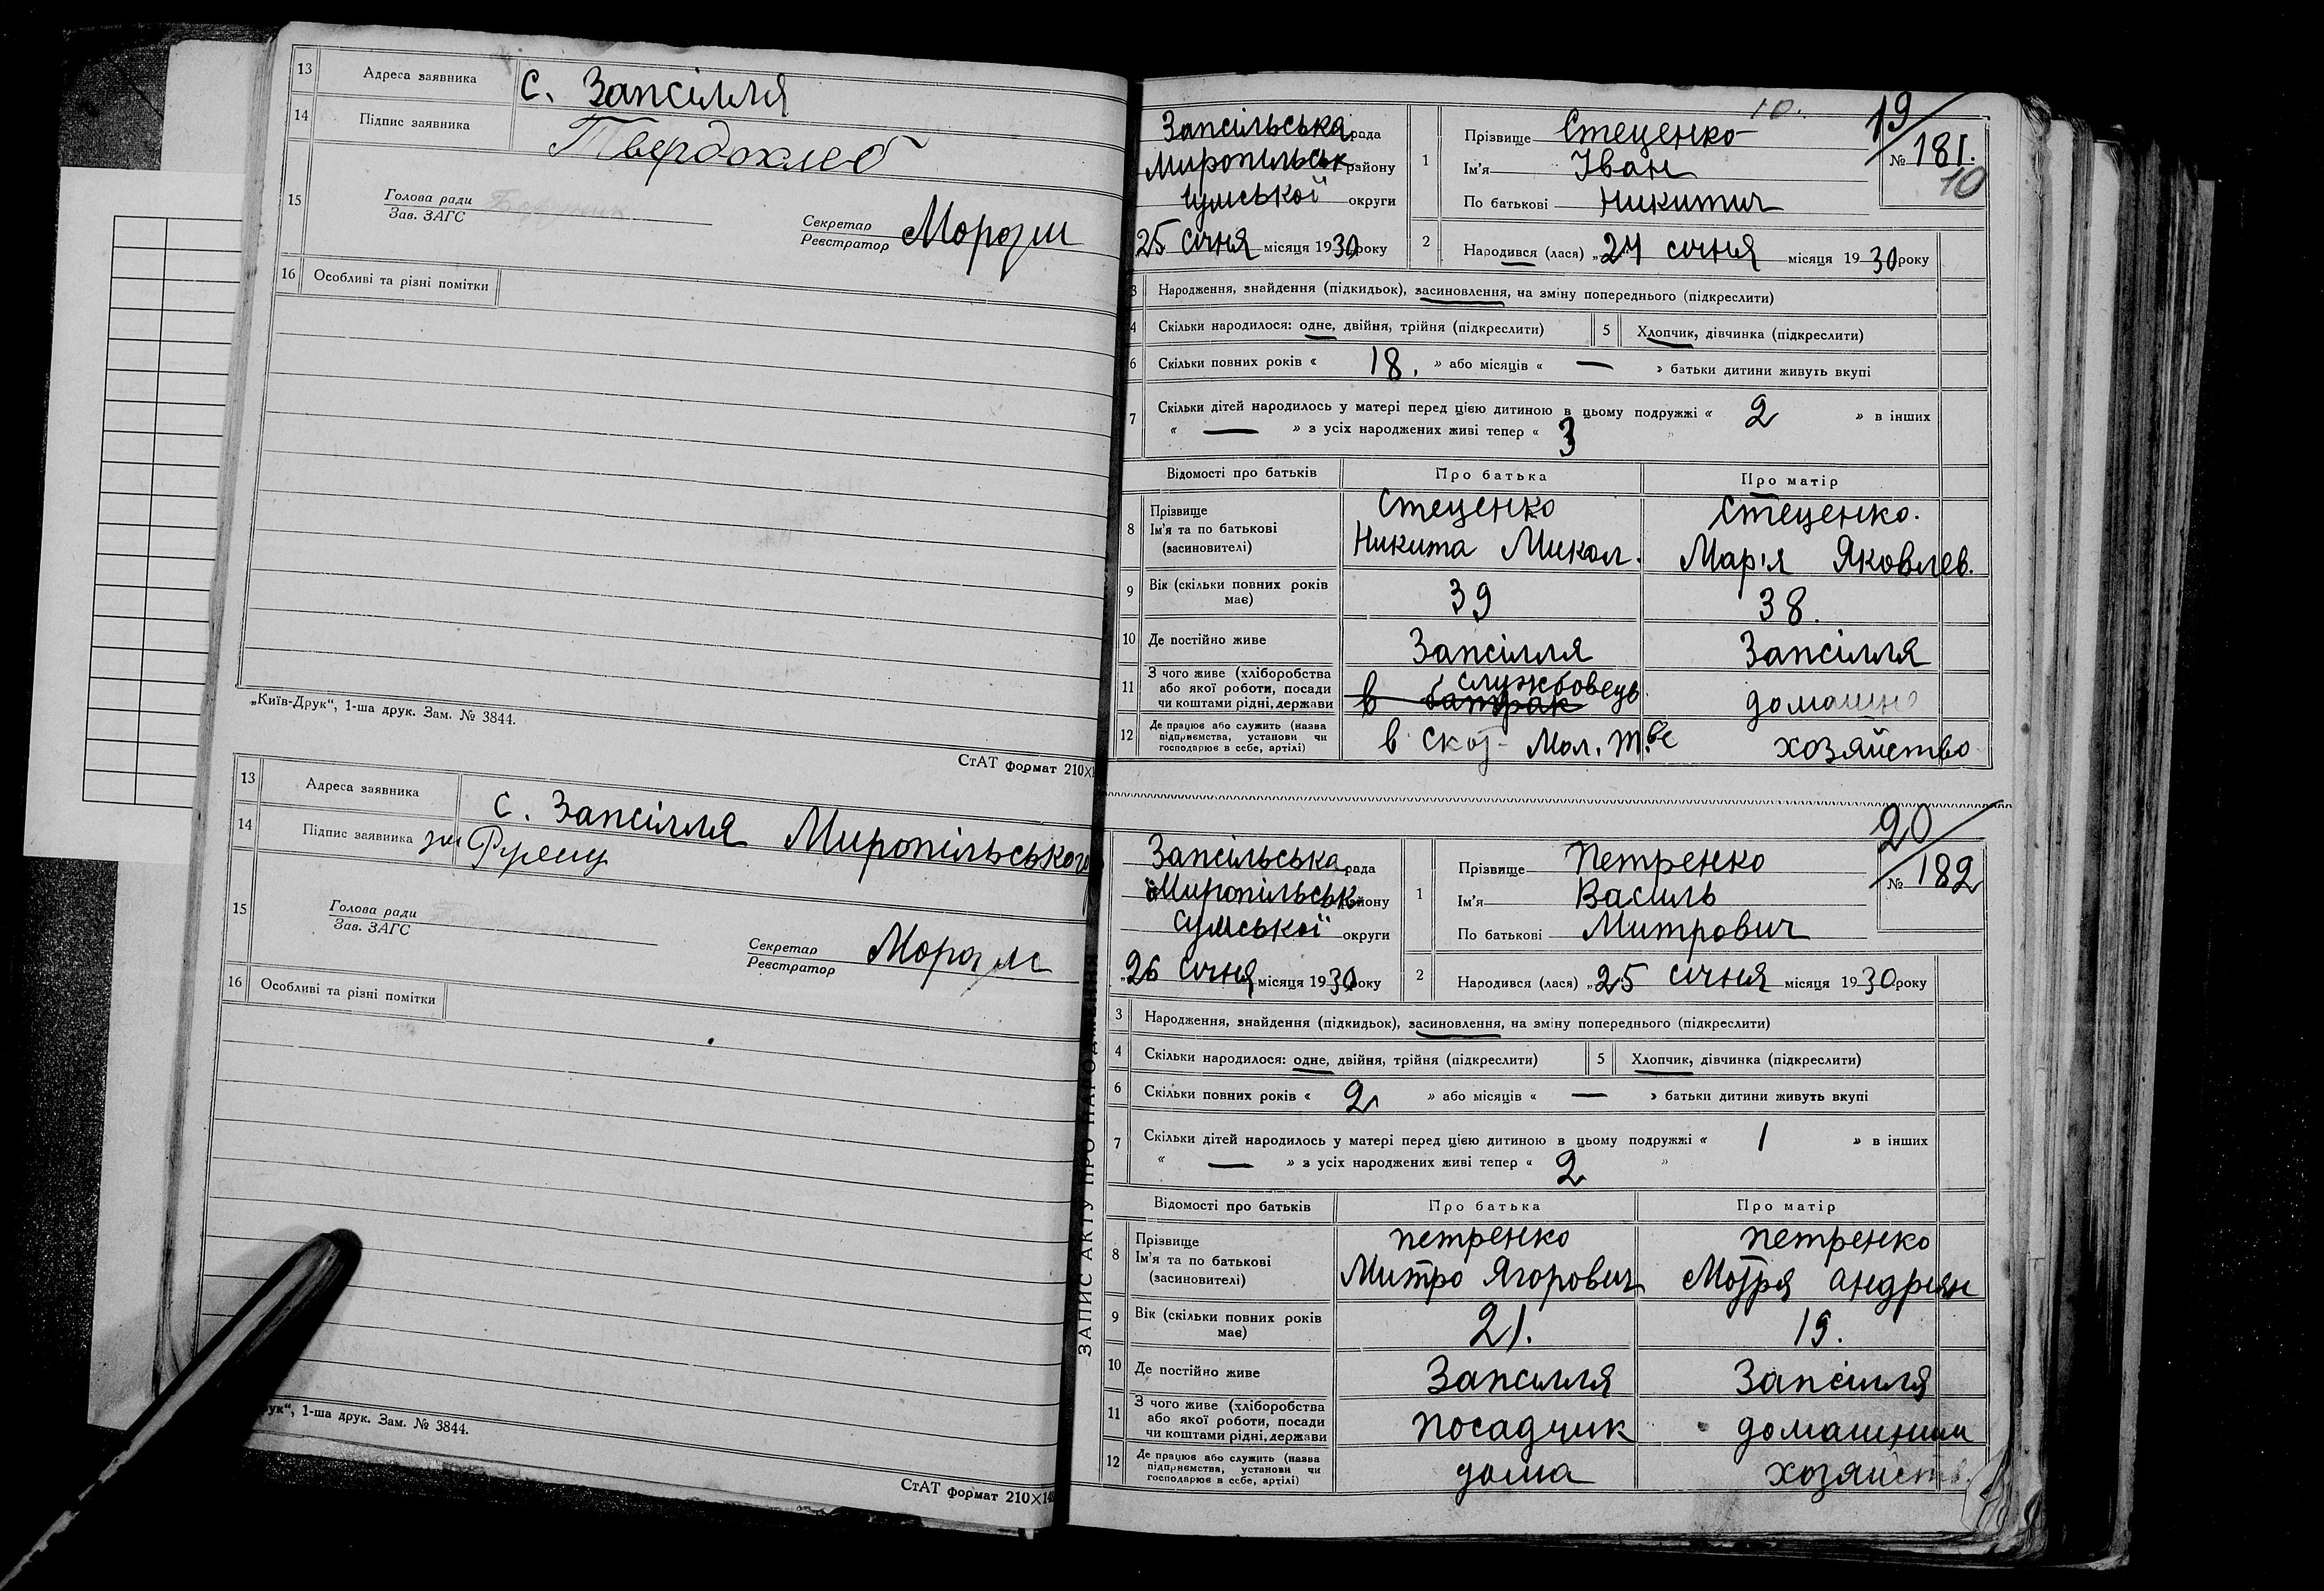 13 Адреса заявника с. Запсілля
14 Підпис заявника Твердохлеб
15 Голова ради
Зав. ЗАГС
Секретар
Реєстратор
16 Особливі та різні помітки
„Київ-Друк“, 1-ша друк. Зам. № 3844.
СтАТ формат 210×1
13 Адреса заявника с. Запсілля Миропільського
14 Підпис заявника
15 Голова ради
Зав. ЗАГС
Секретар
Реєстратор
16 Особливі та різні помітки
ук“, 1-ша друк. Зам. № 3844.
СтАТ формат 210×14
ЗАПИС АКТУ ПРО НАРОДЖЕННЯ
10. 19
Запсільська рада
Миропільськ району
Сумської округи
25 січня місяця 1930 року
1 Прізвище Стеценко
Ім'я Іван
По батькові Никитич
№ 181.
10
2 Народився (лася) „27 січня місяця 1930 року
3 Народження, знайдення (підкидьок), засиновлення, на зміну попереднього (підкреслити)
4 Скільки народилося: одне, двійня, трійня (підкреслити) 5 Хлопчик, дівчинка (підкреслити)
6 Скільки повних років « 18. » або місяців « — » батьки дитини живуть вкупі
7 Скільки дітей народилось у матері перед цією дитиною в цьому подружжі « 2 » в інших
« — » з усіх народжених живі тепер « 3 »
Відомості про батьків Про батька Про матір
8 Прізвище Стеценко Стеценко.
Ім'я та по батькові Никита Микол. Мар'я Яковлев.
(засиновителі)
9 Вік (скільки повних років має) 39 38.
10 Де постійно живе Запсілля Запсілля
11 З чого живе (хліборобства службовець
або якої роботи, посади в батрак домашнє
чи коштами рідні, держави
12 Де працює або служить (назва
підприємства, установи чи в Мол. хозяйство
господарює в себе, артілі)
20
Запсільська рада
Миропільськ району
Сумської округи
„26 січня місяця 1930 року
1 Прізвище Петренко
Ім'я Василь
По батькові Митрович
№ 182
2 Народився (лася) „25 січня місяця 1930 року
3 Народження, знайдення (підкидьок), засиновлення, на зміну попереднього (підкреслити)
4 Скільки народилося: одне, двійня, трійня (підкреслити) 5 Хлопчик, дівчинка (підкреслити)
6 Скільки повних років « 2 » або місяців « — » батьки дитини живуть вкупі
7 Скільки дітей народилось у матері перед цією дитиною в цьому подружжі « 1 » в інших
« — » з усіх народжених живі тепер « 2 »
Відомості про батьків Про батька Про матір
8 Прізвище петренко петренко
Ім'я та по батькові Митро Ягорович Мотря андріян
(засиновителі)
9 Вік (скільки повних років має) 21. 19.
10 Де постійно живе Запсілля Запсілля
11 З чого живе (хліборобства
або якої роботи, посади посадчик домашним
чи коштами рідні, держави
12 Де працює або служить (назва
підприємства, установи чи дома хозяйств.
господарює в себе, артілі)